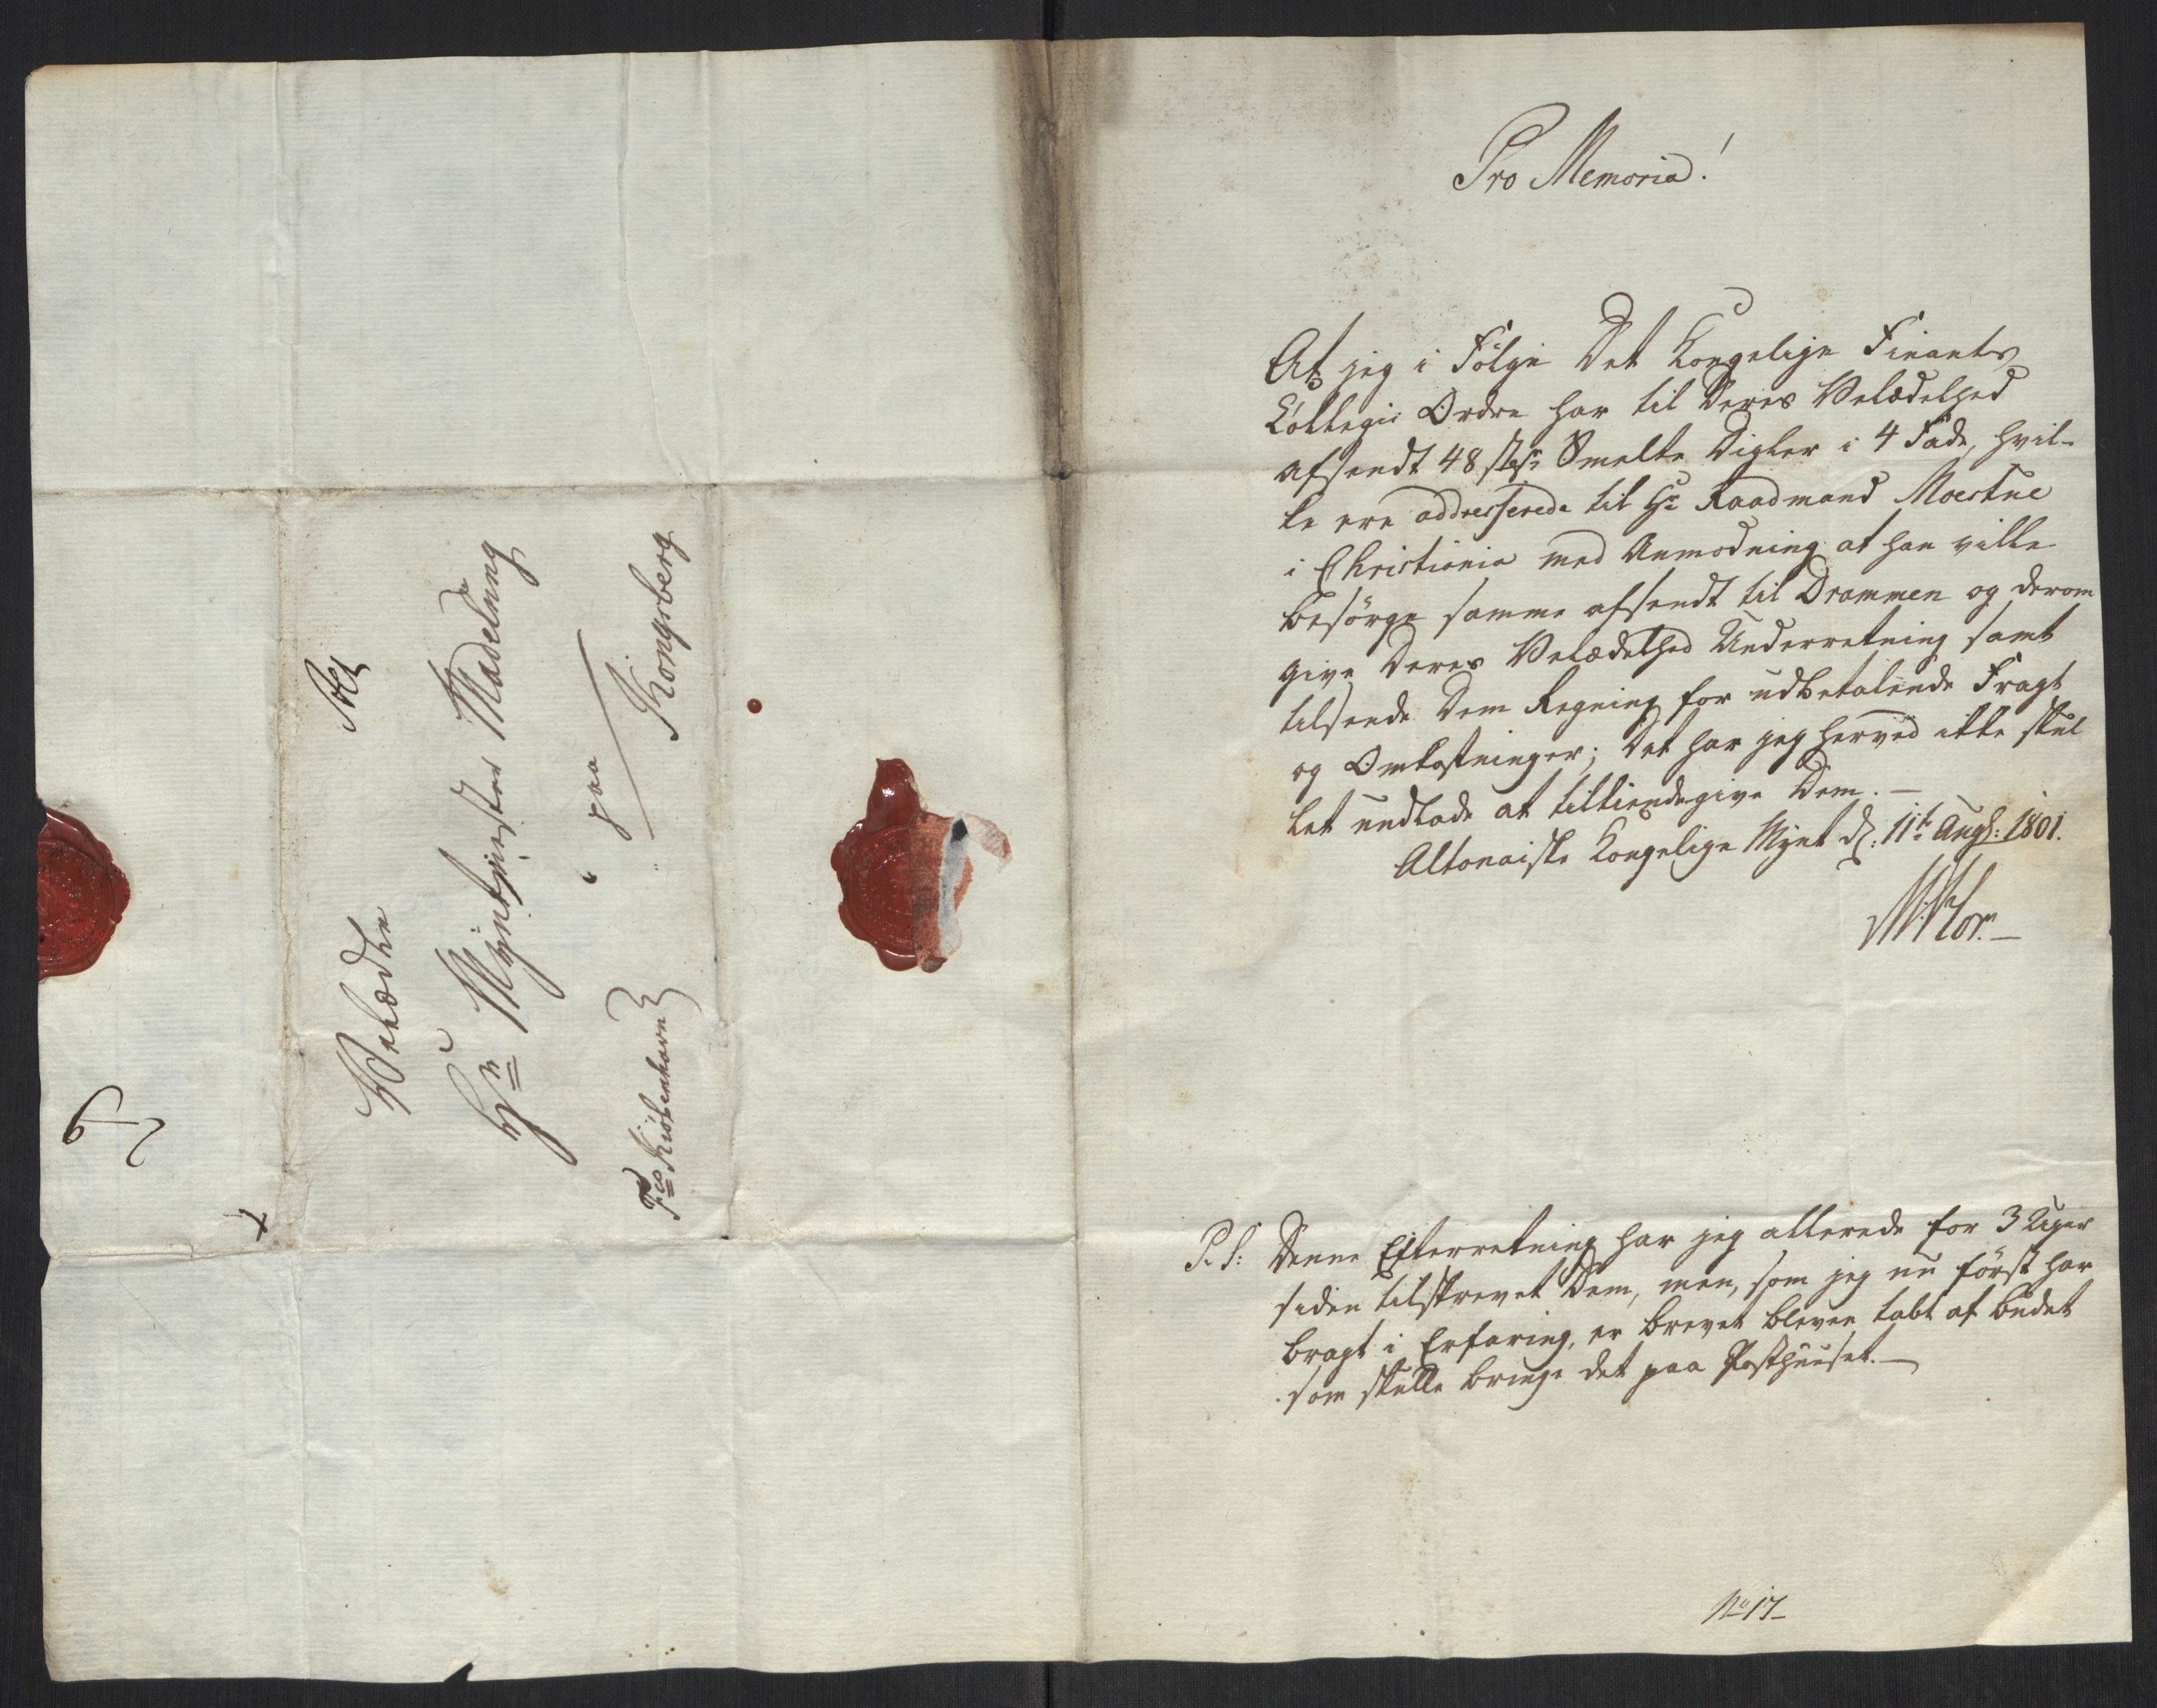 Velædle
Hn Myntmester Madelung
paa
Kongsberg
Fco Kiöbenhavn
6
Pro Memoria!
At jeg i Fölge Det Kongelige Finants
Collegii Ordre har til Deres Velædelhed
afsendt 48 Smelte Digler i 4 Fade, hvil-
ke ere addresserede til Hr Raadmand Moestue
i Christiania med Anmodning at han ville
besörge samme afsendt til Drammen og derom
give Deres Velædelhed Underretning samt
tilsende Dem Regning for udbetalende Fragt
og Omkostninger; Det har jeg herved ikke skul
let undlade at tilkiendegive Dem. —
Altonaiske Kongelige Mynt d: 11t Augs: 1801.
P. S: Denne Efterretning har jeg allerede for 3 Uger
siden tilskrevet Dem, men, som jeg nu först har
bragt i Erfaring, er brevet bleven tabt af budet
som skulle bringe det paa Posthuuset. —
No 17